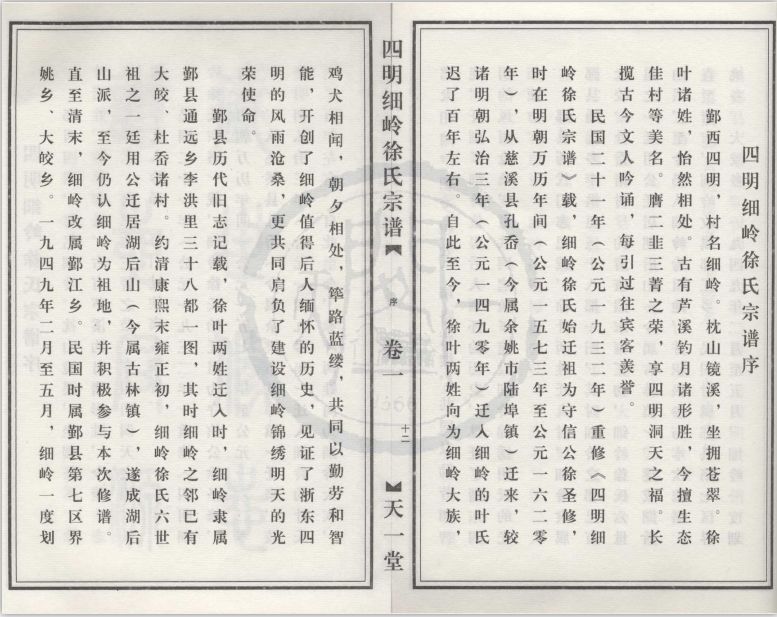 四明细岭徐氏宗谱序
鄞西四明，村名细岭。枕山镜溪，坐拥苍翠。徐
叶诸姓，怡然相处。古有芦溪钓月诸形胜，今擅生态
佳村等美名。膺二韭三菁之荣，享四明洞天之福。长
揽古今文人吟诵，每引过往宾客羡誉。
民国二十一年（公元一九三二年）重修《四明细
岭徐氏宗谱》载，细岭徐氏始迁祖为守信公徐圣修，
时在明朝万历年间（公元一五七三年至公元一六二零
年）从慈溪县孔岙（今属余姚市陆埠镇）迁来，较
诸明朝弘治三年（公元一四九零年）迁入细岭的叶氏
迟了百年左右。自此至今，徐叶两姓向为细岭大族，
四明细岭徐氏宗谱
序
卷一
十二
天一堂
鸡犬相闻，朝夕相处，筚路蓝缕，共同以勤劳和智
能，开创了细岭值得后人缅怀的历史，见证了浙东四
明的风雨沧桑，更共同肩负了建设细岭锦绣明天的光
荣使命。
鄞县历代旧志记载，徐叶两姓迁入时，细岭隶属
鄞县通远乡李洪里三十八都一图，其时细岭之邻已有
大皎、杜岙诸村。约清康熙末雍正初，细岭徐氏六世
祖之一廷用公迁居湖后山（今属古林镇），遂成湖后
山派，至今仍认细岭为祖地，并积极参与本次修谱。
直至清末，细岭改属鄞江乡。民国时属鄞县第七区界
姚乡、大皎乡。一九四九年二月至五月，细岭一度划
1666